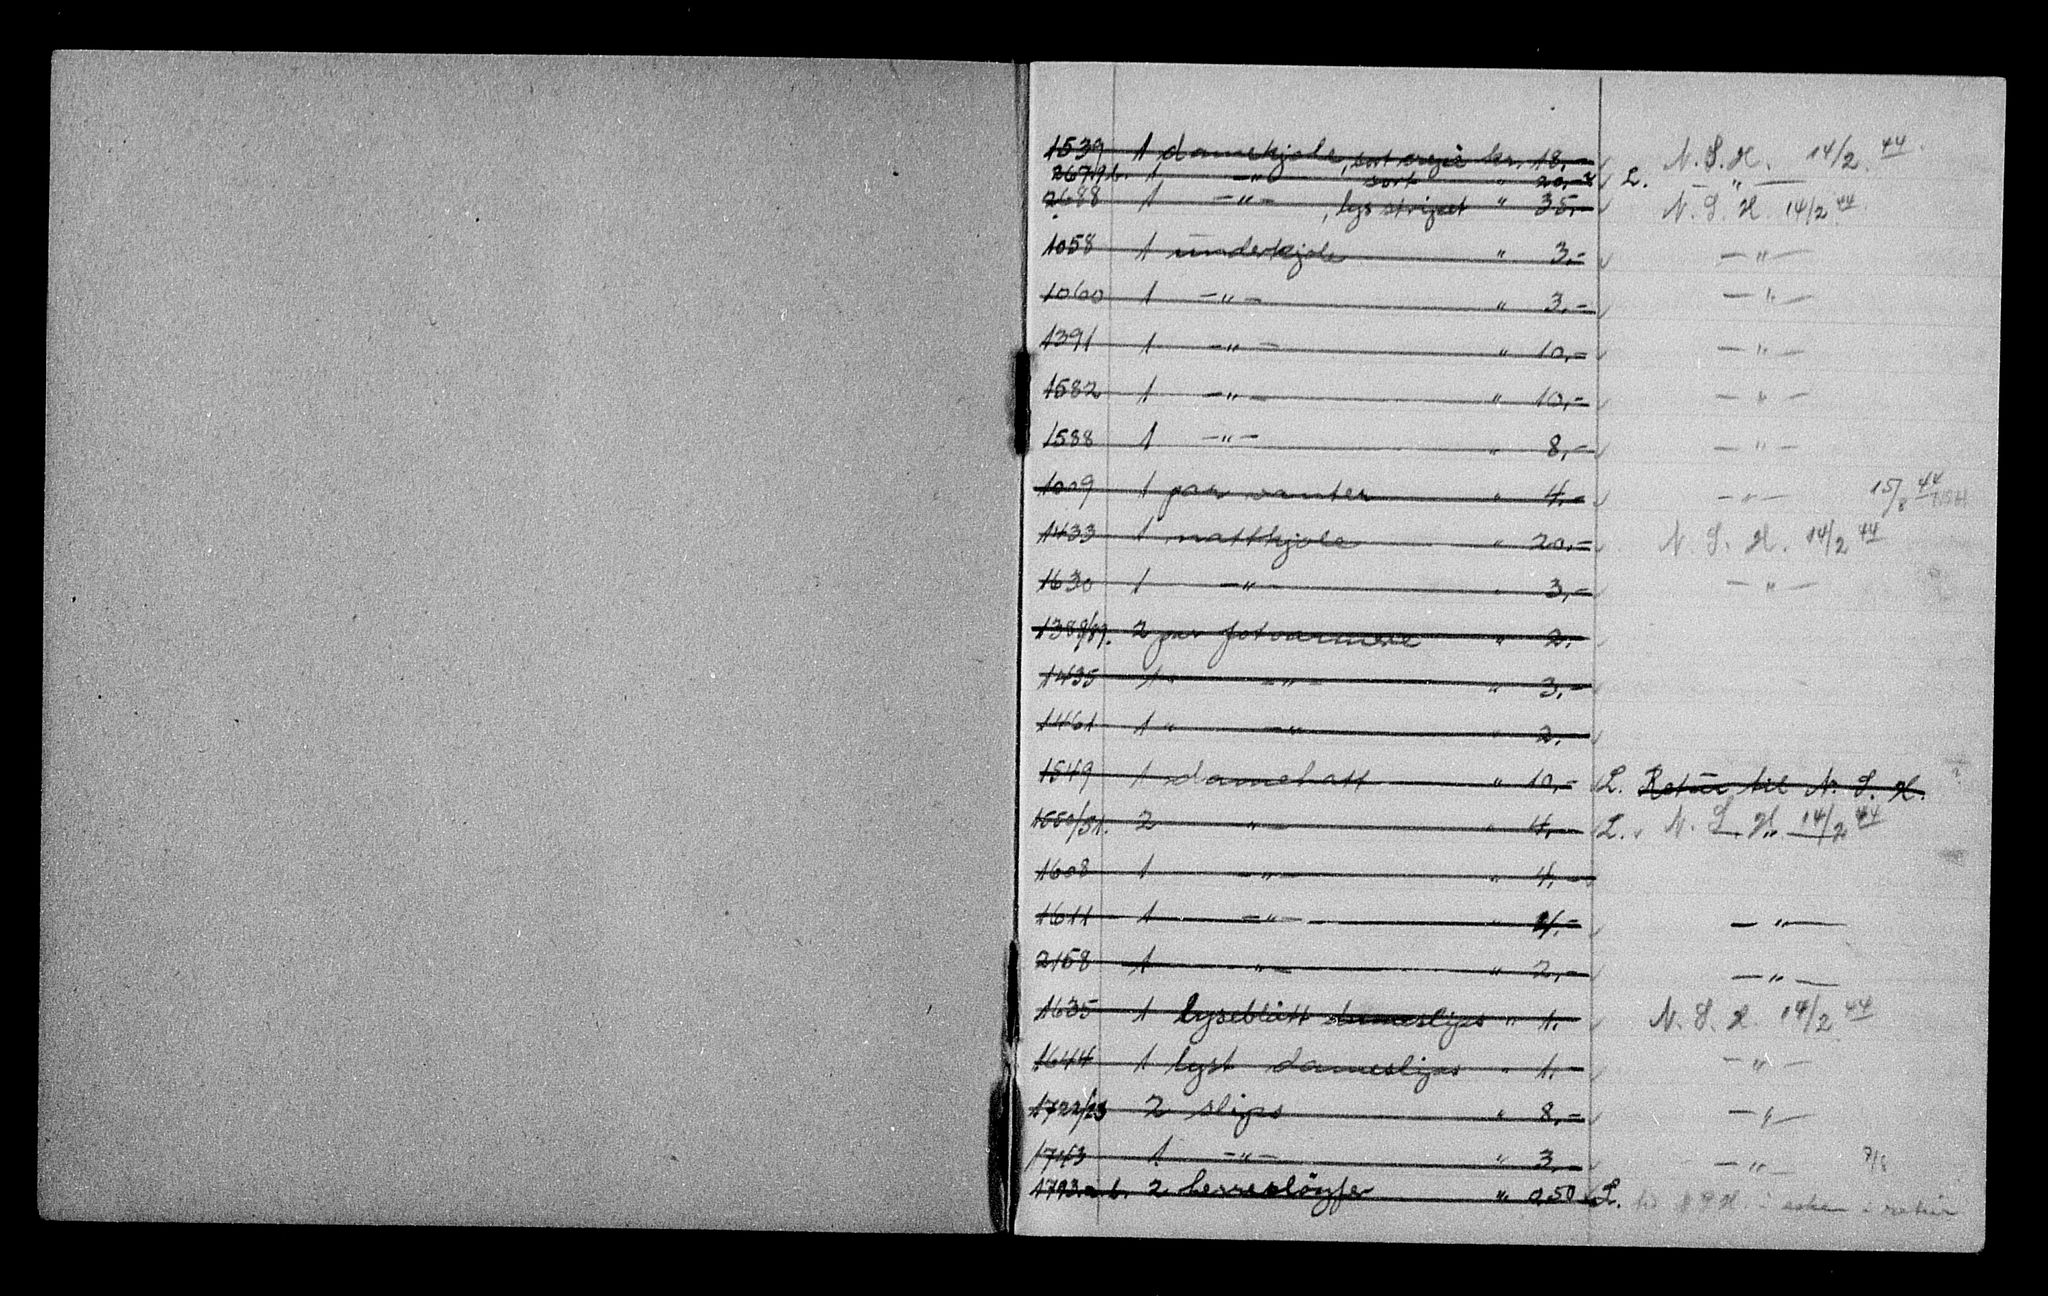 1539 1 damekjole, sort crepé kr. 18,- N. S. H. 14/2 44.
2679 b. 1 -"- sort " 20,- L. -"-
2688 1 -"-, lys stripet " 35,- N. S. H. 14/2 44
1058 1 underkjole " 3,- -"-
1060 1 -"- " 3,- -"-
1391 1 -"- " 10,- -"-
1582 1 -"- " 10,- -"-
1588 1 -"- " 8,- -"-
1009 1 par vanter " 4,- -"- 15/8 44 NSH
1433 1 nattkjole " 20,- N. S. H. 14/2 44
1630 1 -"- " 3,- -"-
1388/89. 2 par fotvarmere " 2.-
1435 1 " -"- " 3,-
1461 1 " -"- " 2.-
1549 1 damehatt " 10,- L. Retur til N. S. H.
1550/51. 2 -"- " 4,- L. N. S. H. 14/2 44
1608 1 -"- " 4,-
1611 1 -"- " 4,- -"-
2158 1 -"- " 2,- -"-
1635 1 lyseblått dameslips " 1.- N. S. H. 14/2 44
1644 1 lyst dameslips " 1.- -"-
1722/23 2 slips " 8,- -"-
1743 1 -"- " 3,- -"-
1793 a. b. 2 herresløyfer " 0,50 L. retur